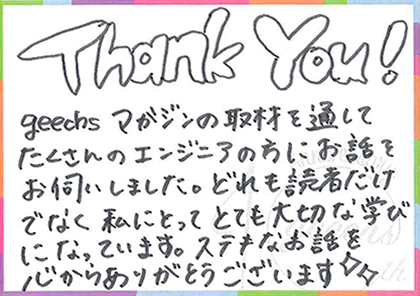 Thank You!
geechs マガジンの取材を通して
たくさんのエンジニアの方にお話を
お伺いしました。どれも読者だけ
でなく私にとってとても大切な学び
になっています。ステキなお話を
心からありがとうございます✨